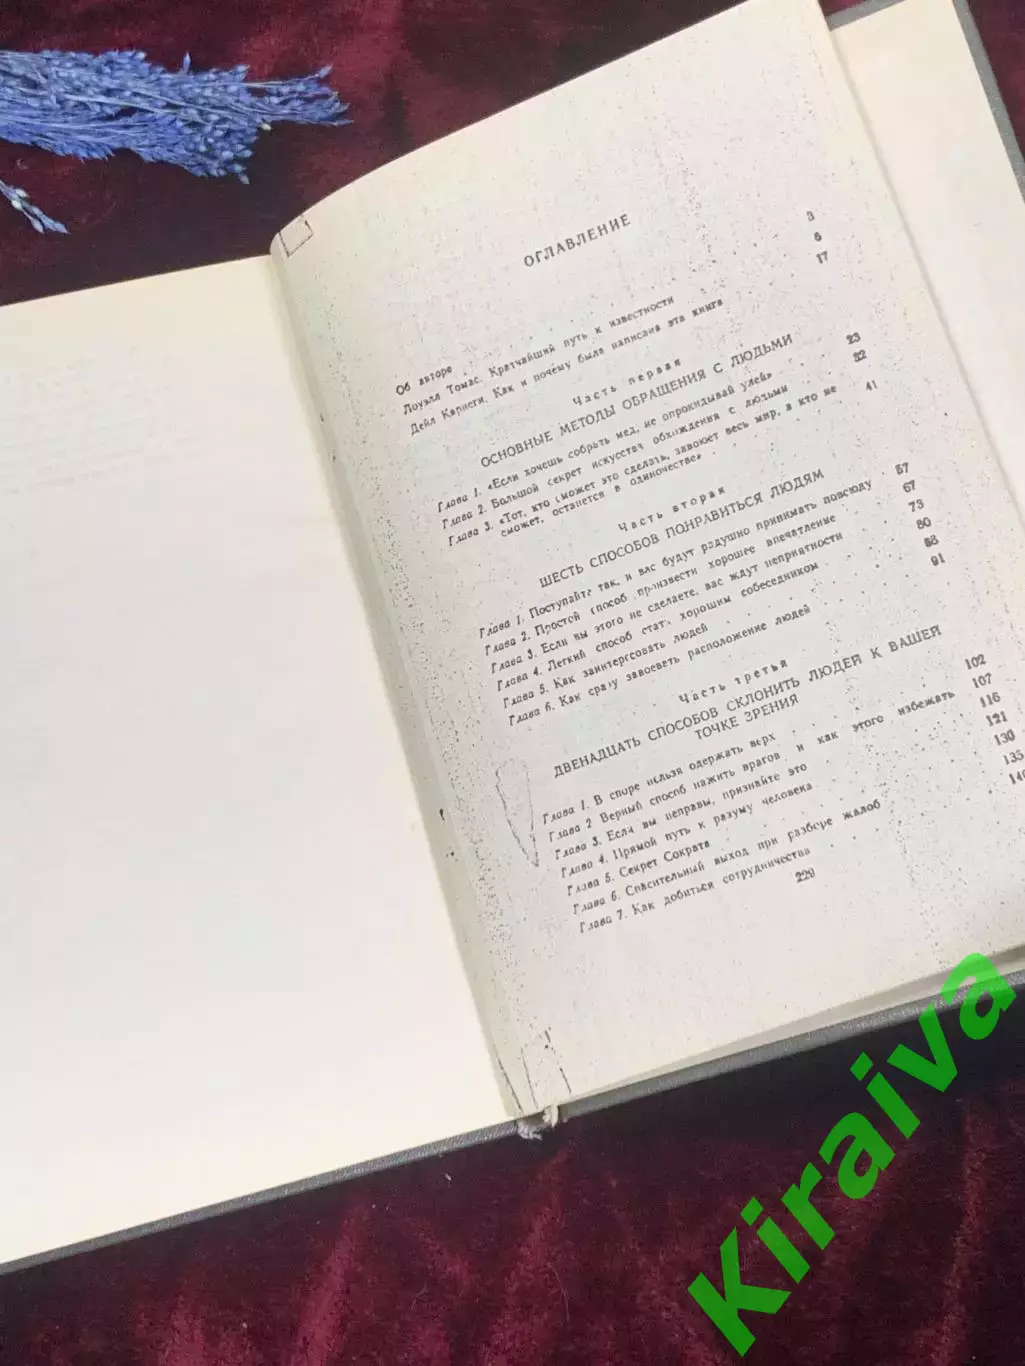 ОГЛАВЛЕНИЕ
Об авторе 3
Лоуэлл Томас. Кратчайший путь к известности 6
Дейл Карнеги. Как и почему была написана эта книга 17
Часть первая
ОСНОВНЫЕ МЕТОДЫ ОБРАЩЕНИЯ С ЛЮДЬМИ
Глава 1. «Если хочешь собрать мед, не опрокидывай улей» . 23
Глава 2. Большой секрет искусства обхождения с людьми . 22
Глава 3. «Тот, кто сможет это сделать, завоюет весь мир, а кто не
сможет, останется в одиночестве» . 41
Часть вторая
ШЕСТЬ СПОСОБОВ ПОНРАВИТЬСЯ ЛЮДЯМ
Глава 1. Поступайте так, и вас будут радушно принимать повсюду 57
Глава 2. Простой способ произвести хорошее впечатление 67
Глава 3. Если вы этого не сделаете, вас ждут неприятности 73
Глава 4. Легкий способ стать хорошим собеседником . 80
Глава 5. Как заинтересовать людей . 88
Глава 6. Как сразу завоевать расположение людей . 91
Часть третья
ДВЕНАДЦАТЬ СПОСОБОВ СКЛОНИТЬ ЛЮДЕЙ К ВАШЕЙ
ТОЧКЕ ЗРЕНИЯ
Глава 1. В споре нельзя одержать верх . 102
Глава 2 Верный способ нажить врагов и как этого избежать 107
Глава 3. Если вы неправы, признайте это 116
Глава 4. Прямой путь к разуму человека 121
Глава 5. Секрет Сократа . 130
Глава 6. Спасительный выход при разборе жалоб 135
Глава 7. Как добиться сотрудничества 140
229
Kiraiva